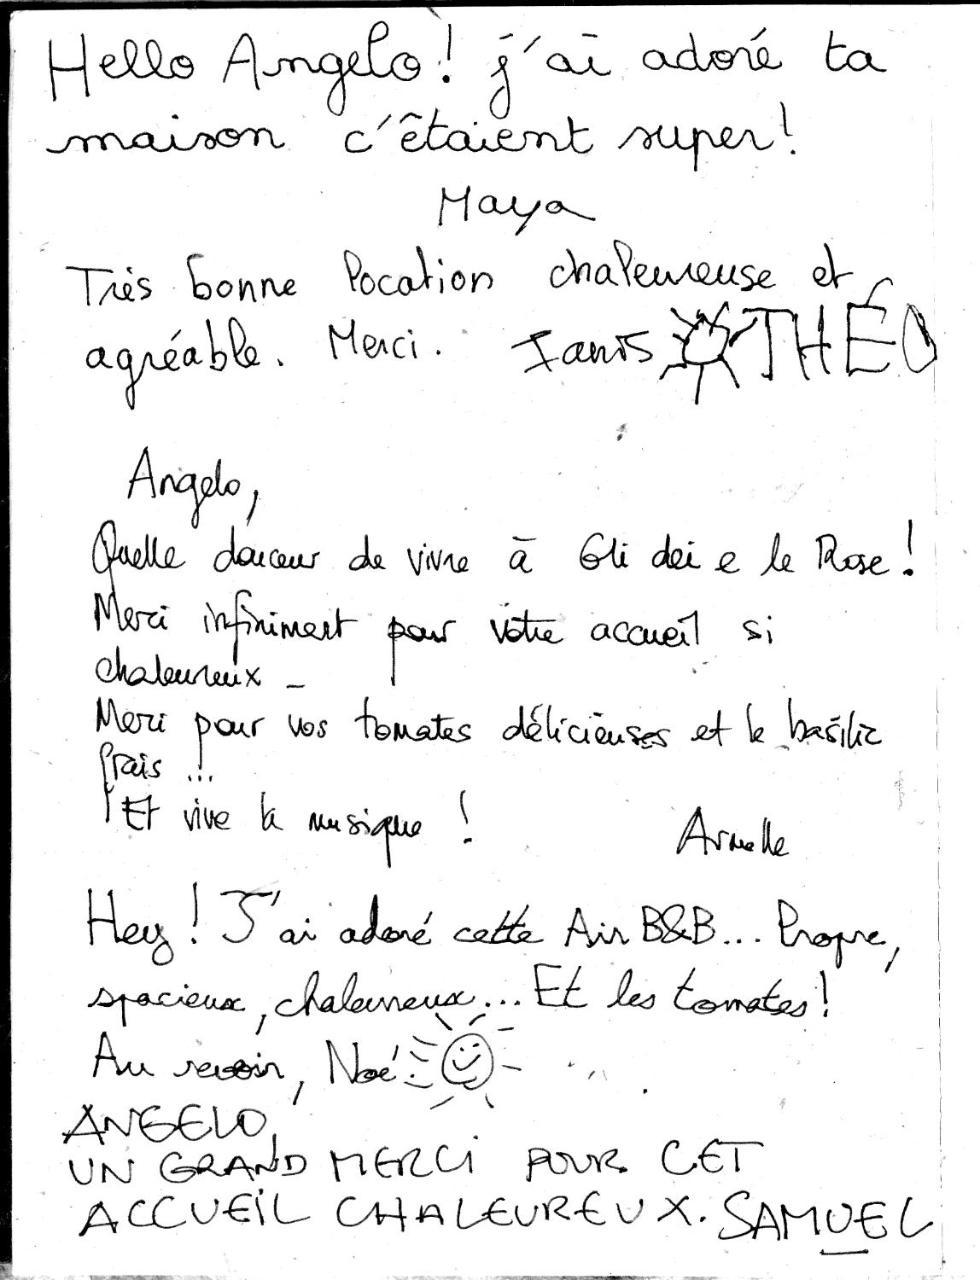 Hello Angelo! j'ai adoré ta
maison c'êtaient super!
Maya
Très bonne location chaleureuse et
agréable. Merci. Ianis THÉO
Angelo,
Quelle douceur de vivre à Gli dei e le Rose!
Merci infiniment pour votre accueil si
chaleureux
Merci pour vos tomates délicieuses et le basilic
frais ...
Et vive la musique !
Armelle
Hey! J'ai adoré cette Air B&B... Propre,
spacieux, chaleureux... Et les tomates!
Au revoir, Noé
ANGELO,
UN GRAND MERCI POUR CET
ACCUEIL CHALEUREUX. SAMUEL